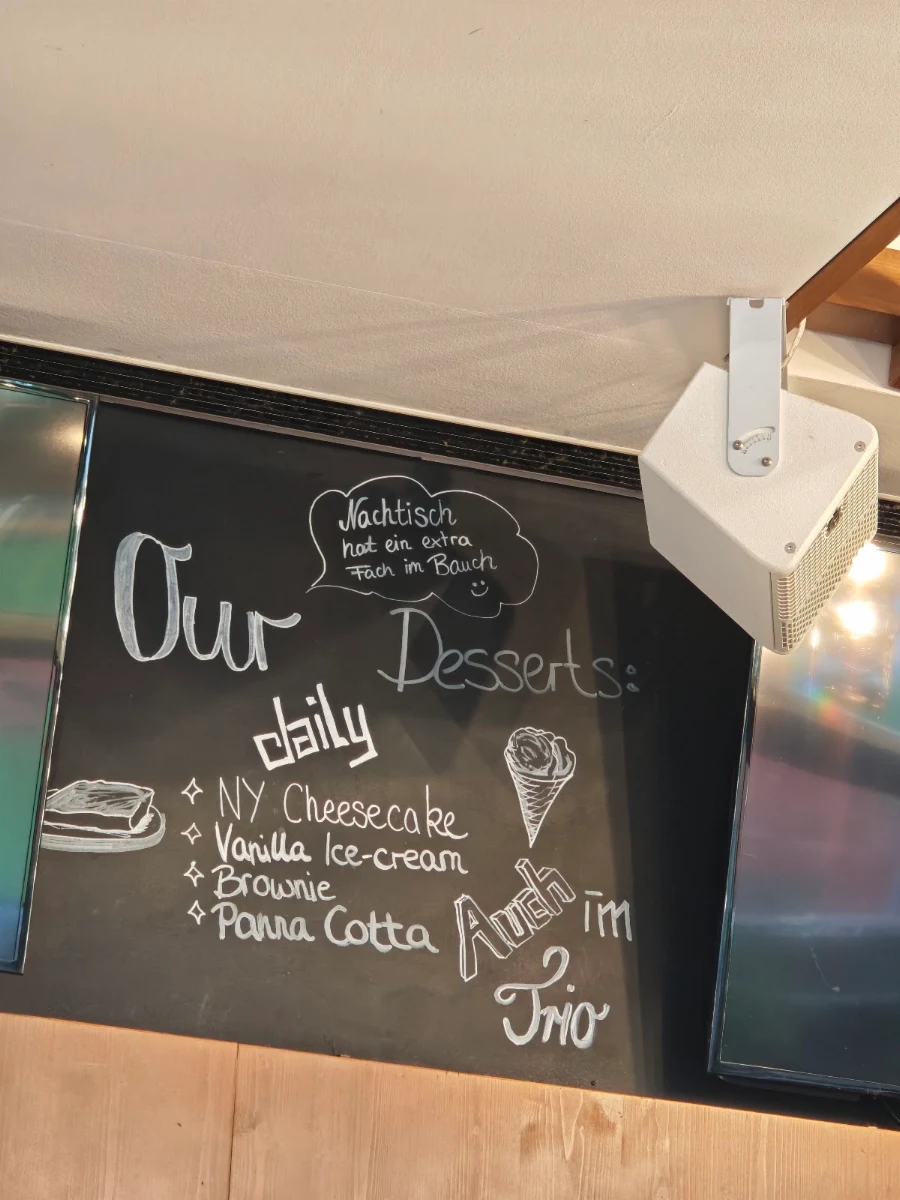 Nachtisch
hat ein extra
Fach im Bauch
Our
Desserts:
daily
NY Cheesecake
Vanilla Ice-cream
Brownie
Panna Cotta
Auch im
Trio